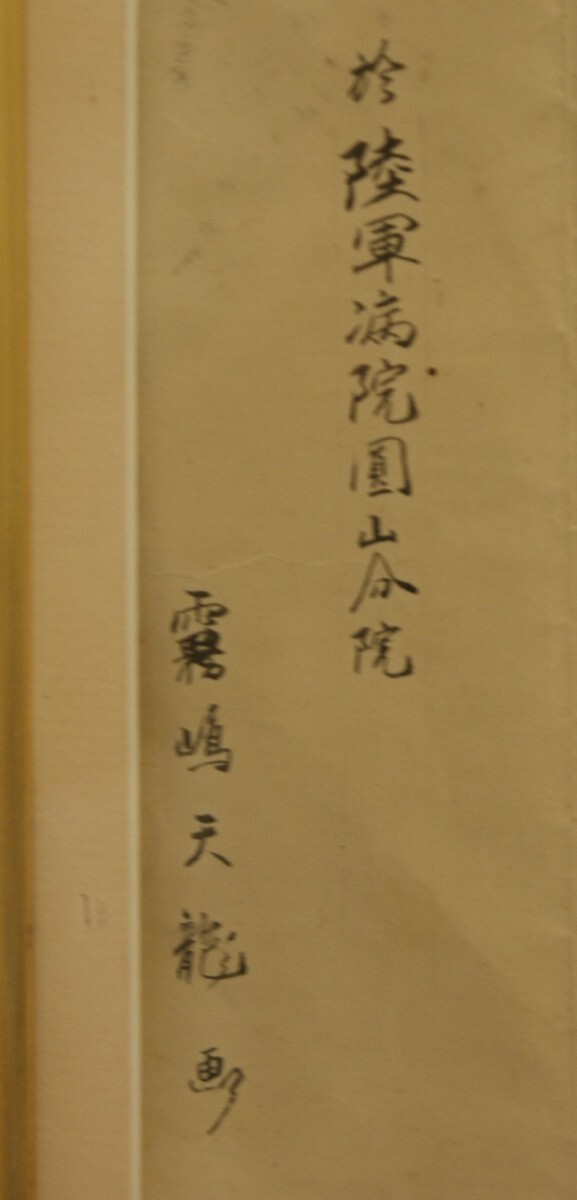 於陸軍病院圓山分院
霧嶋天龍画